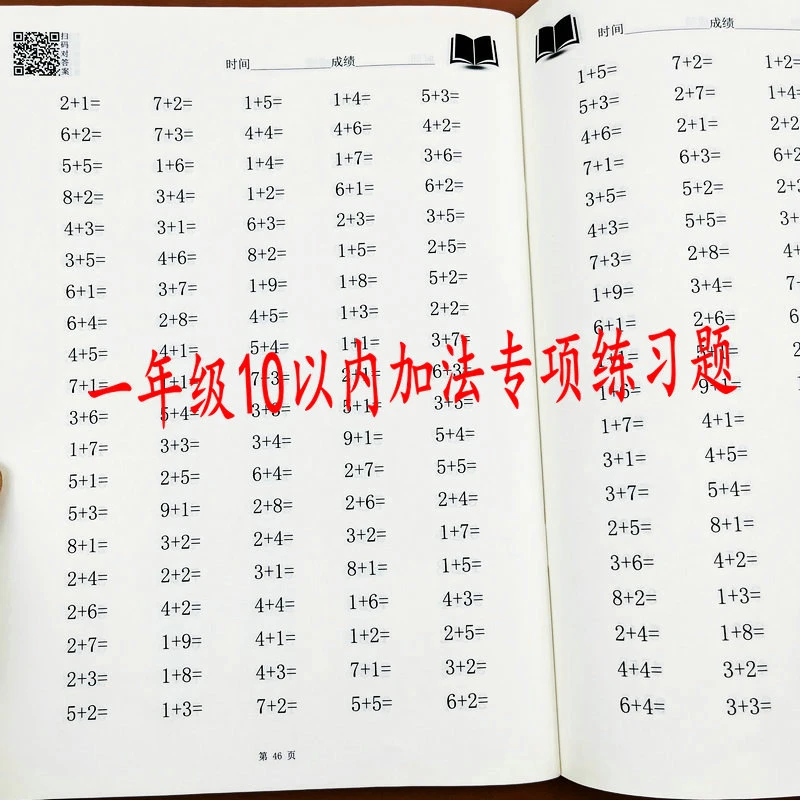 扫码对答案
时间__________成绩__________
2+1= 7+2= 1+5= 1+4= 5+3=
6+2= 7+3= 4+4= 4+6= 4+2=
5+5= 1+6= 1+4= 1+7= 3+6=
8+2= 3+4= 1+2= 6+1= 6+2=
4+3= 3+1= 6+3= 2+3= 3+5=
3+5= 4+6= 8+2= 1+5= 2+5=
6+1= 3+7= 1+9= 1+8= 5+2=
6+4= 2+8= 4+5= 1+3= 2+2=
4+5= 4+1= 5+4= 1+1= 3+7=
一年级10以内加法专项练习题
7+1= 7+3= 2+1= 6+3=
3+6= 5+4= 3+3= 5+1= 3+5=
1+7= 3+3= 3+4= 9+1= 5+4=
5+1= 2+5= 6+4= 2+7= 5+5=
5+3= 9+1= 2+8= 2+6= 2+4=
8+1= 3+2= 2+4= 3+2= 1+7=
2+4= 2+2= 3+1= 8+1= 1+5=
2+6= 4+2= 4+4= 1+6= 4+3=
2+7= 1+9= 4+1= 1+2= 2+5=
2+3= 1+8= 4+3= 7+1= 3+2=
5+2= 1+3= 7+2= 5+5= 6+2=
第 46 页
时间__________成绩
1+5= 7+2= 1+2=
5+3= 2+7= 1+4
4+6= 2+1= 2+2
7+1= 6+3= 6+2
3+5= 5+2= 2+3
4+3= 5+5= 3+
7+3= 2+8= 4+
1+9= 3+4= 7+
6+1= 2+6= 6
1+6= 9+1=
1+7= 4+1=
3+1= 4+5=
3+7= 5+4=
2+5= 8+1=
3+6= 4+2=
8+2= 1+3=
2+4= 1+8=
4+4= 3+2=
6+4= 3+3=